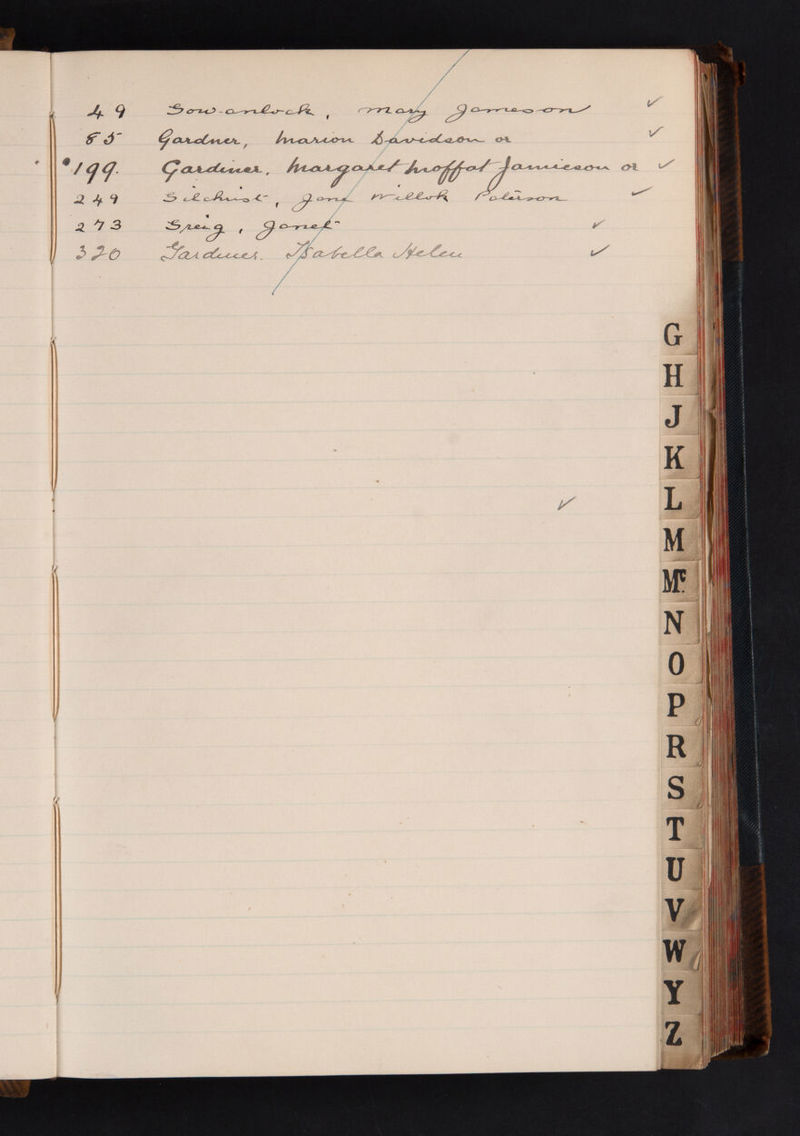 49 Gowanlock, Mary Jameson ✓
85 Gardner, Marion Davidson or ✓
199. Gardiner, Margaret Moffat Jamieson or ✓
249 Gilchrist, Jane Willok Paterson ✓
273 Greig, Janet ✓
320 Gardiner. Isabella Helen ✓
✓
G
H
J
K
L
M
Mc
N
O
P
R
S
T
U
V
W
Y
Z